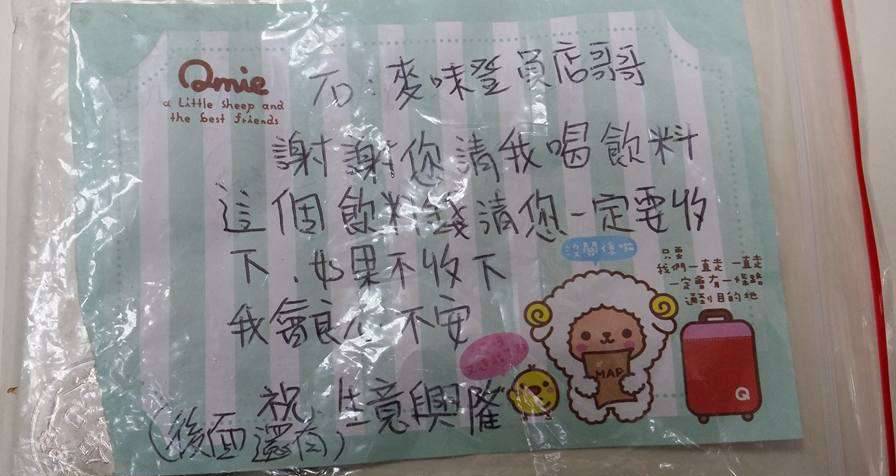 Qmie
a Little sheep and
the best friends
TO:麥味登員店哥哥
謝謝您請我喝飲料
這個飲料錢請您一定要收
下,如果不收下
我會良心不安
祝 生意興隆
(後面還有)
沒關係喲
只要
我們一直走 一直走
一定會有一條路
通到目的地
MAP
Q